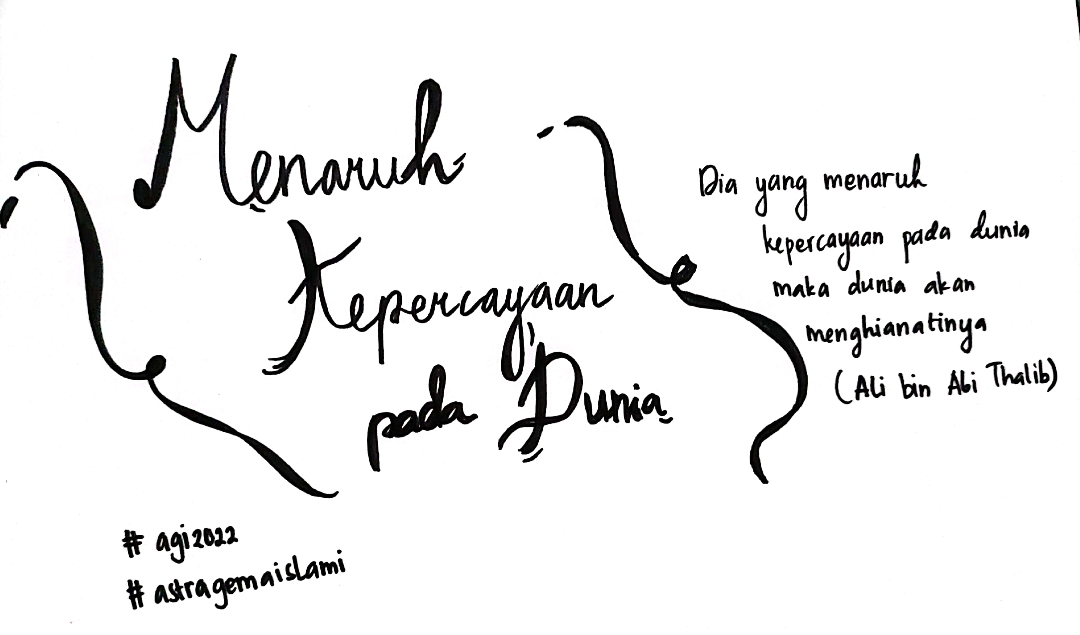 Menaruh
Kepercayaan
pada Dunia
Dia yang menaruh
kepercayaan pada dunia
maka dunia akan
menghianatinya
(Ali bin Abi Thalib)
# agi2022
# astragemaislami